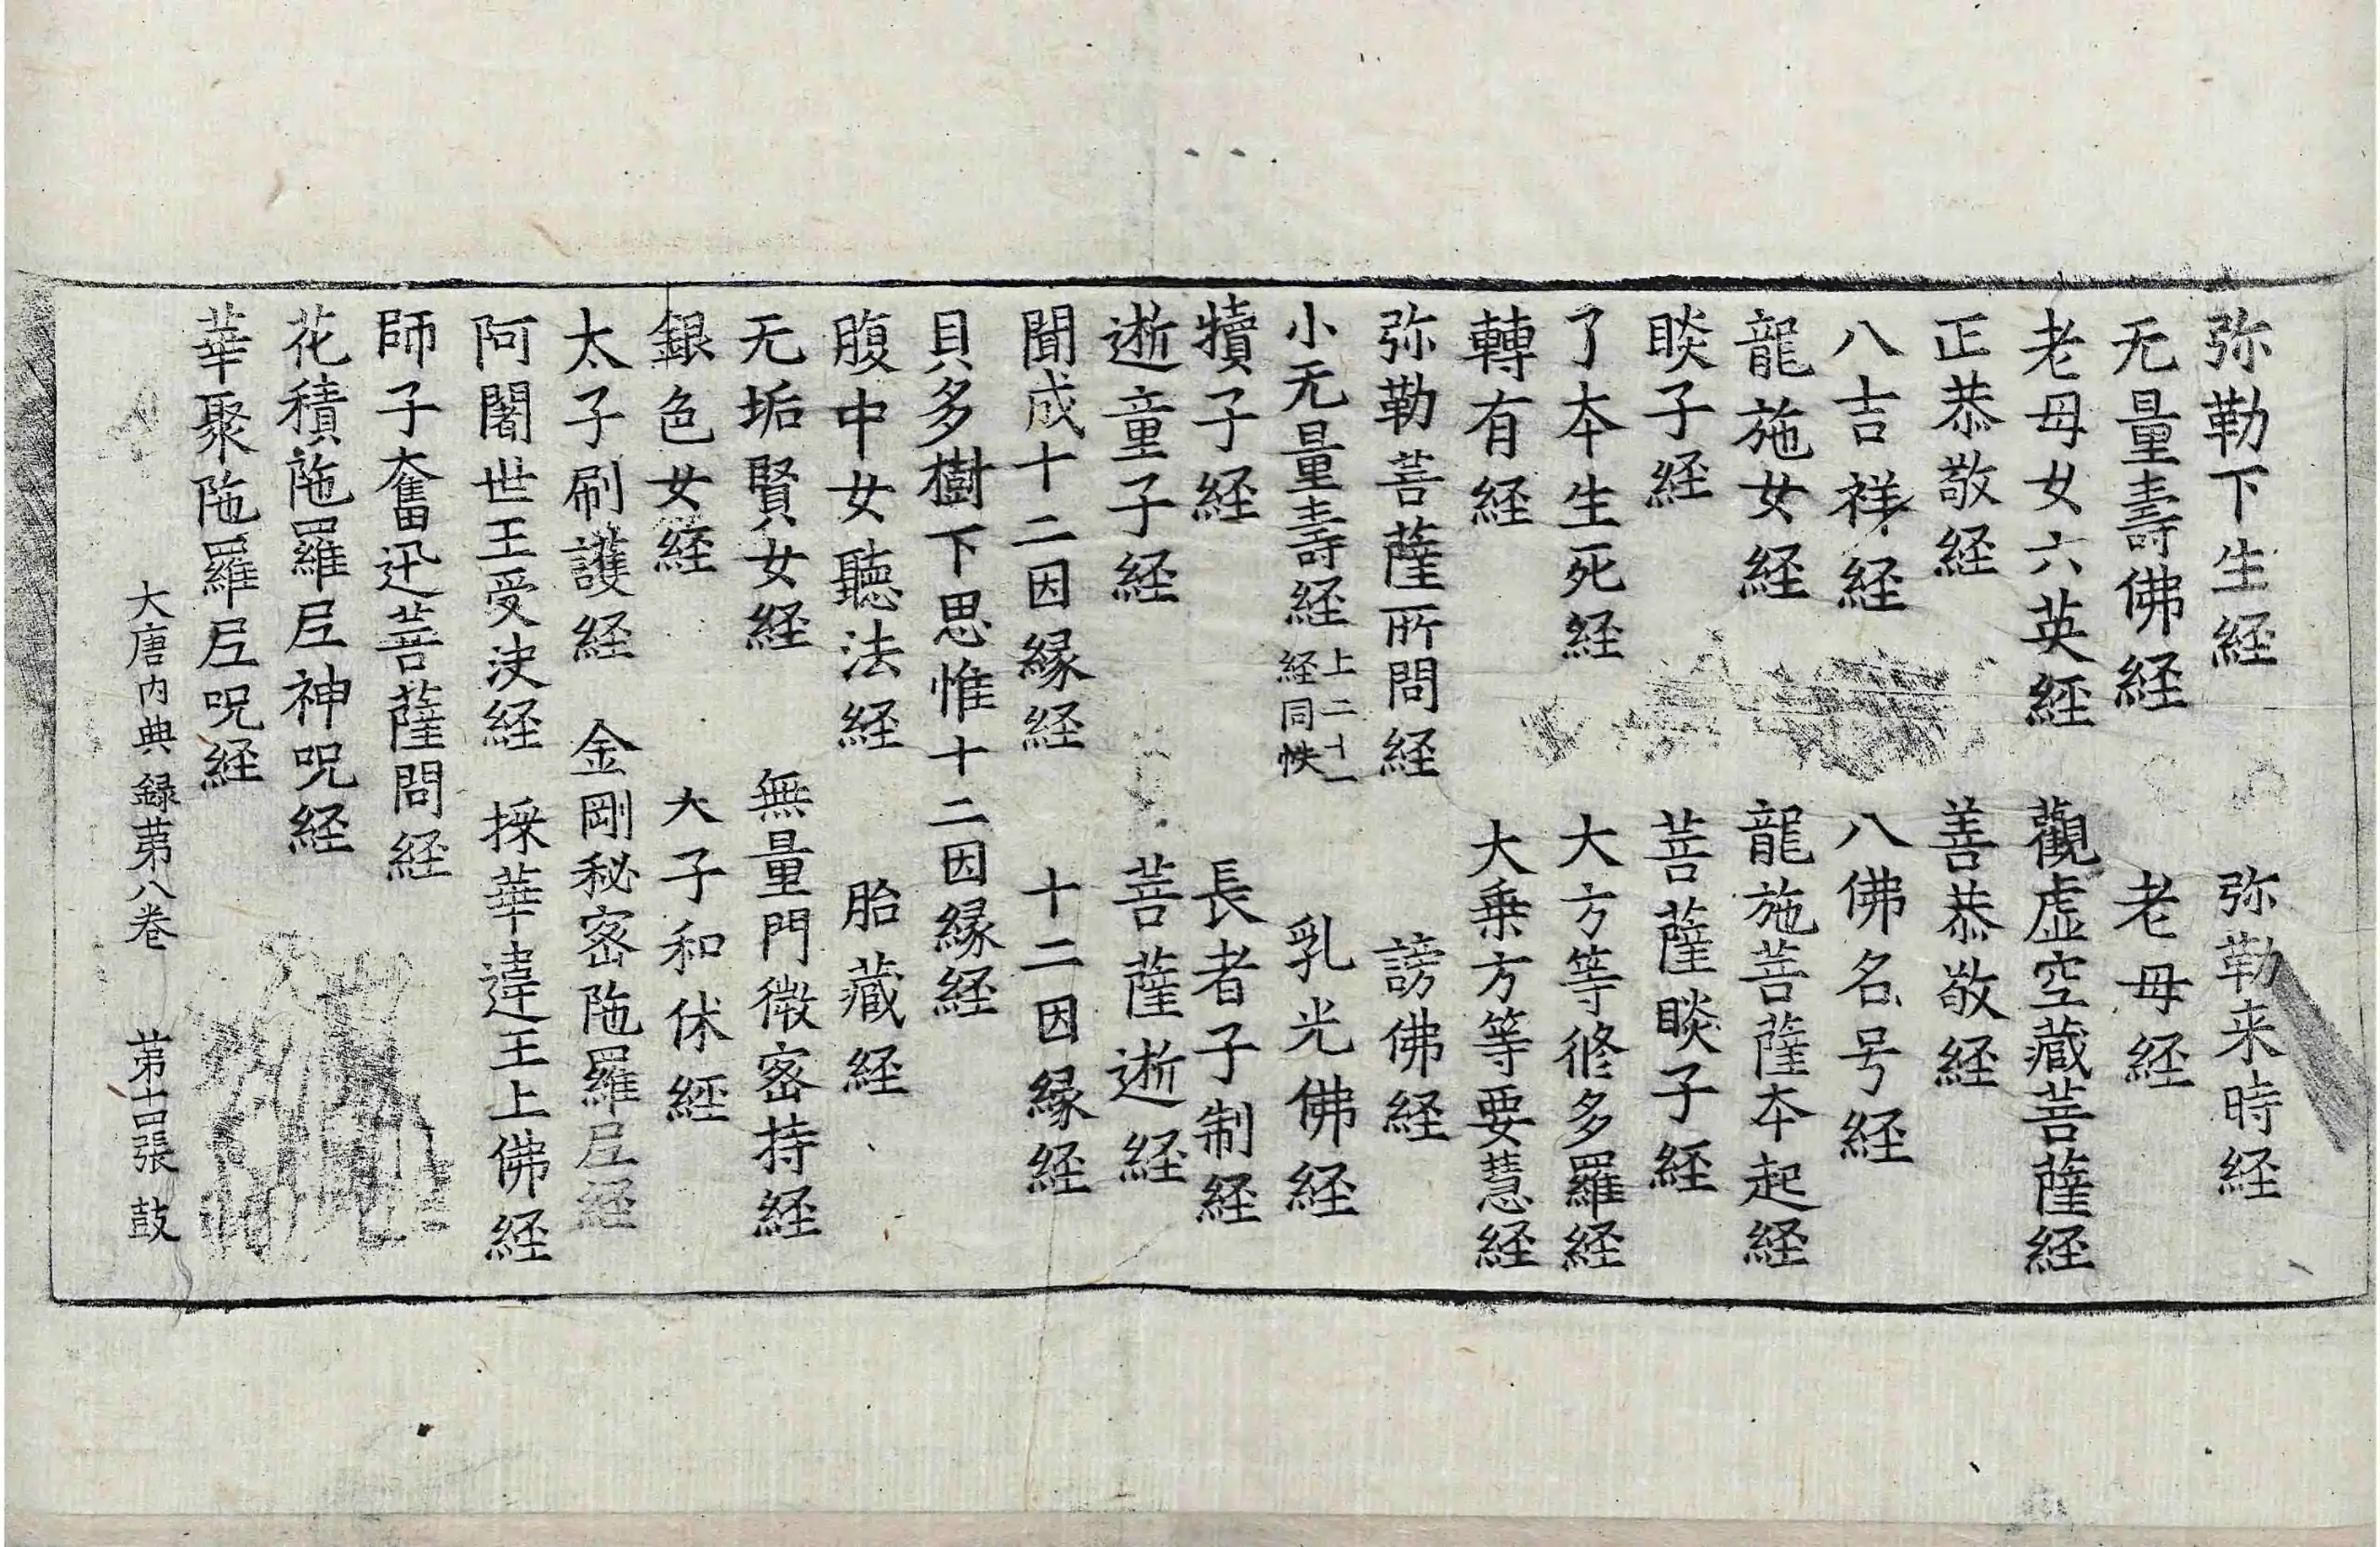 弥勒下生経　弥勒来時経
无量壽佛経　老母経
老母女六英經　觀虛空藏菩薩経
正恭敬経　善恭敬経
八吉祥経　八佛名号経
龍施女経　龍施菩薩本起経
睒子経　菩薩睒子経
了本生死経　大方等修多羅経
轉有経　大乗方等要慧経
弥勒菩薩所問経　謗佛経
小无量壽経　上二十一
経同帙　乳光佛経
犢子経　長者子制経
逝童子経　菩薩逝経
聞成十二因緣経　十二因緣経
貝多樹下思惟十二因緣経
腹中女聽法経　胎藏経
无垢賢女経　無量門微密持経
銀色女経　大子和休經
太子刷護経　金剛秘密陁羅尼経
阿闍世王受决経　採華違王上佛経
師子奮迅菩薩問経
花積陁羅尼神呪経
華聚陁羅尼呪経
大唐内典録苐八巻　苐十四張　鼓